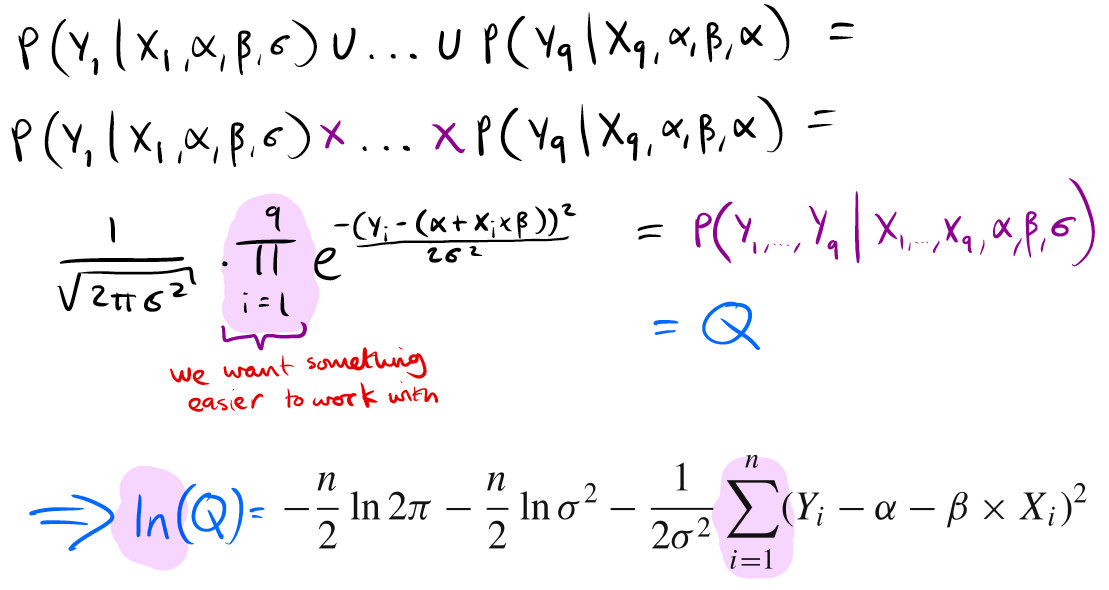 P(Y₁ | X₁, α, β, σ) ∪ ... ∪ P(Y₉ | X₉, α, β, α) =
P(Y₁ | X₁, α, β, σ) × ... × P(Y₉ | X₉, α, β, α) =
1/√(2πσ²) · ∏_{i=1}^{9} e^{-(Y_i - (α + X_i × β))²/2σ²} = P(Y₁,..., Y₉ | X₁,..., X₉, α, β, σ)
= Q
we want something
easier to work with
⇒ ln(Q) = -n/2 ln 2π - n/2 ln σ² - 1/2σ² ∑_{i=1}^{n} (Y_i - α - β × X_i)²